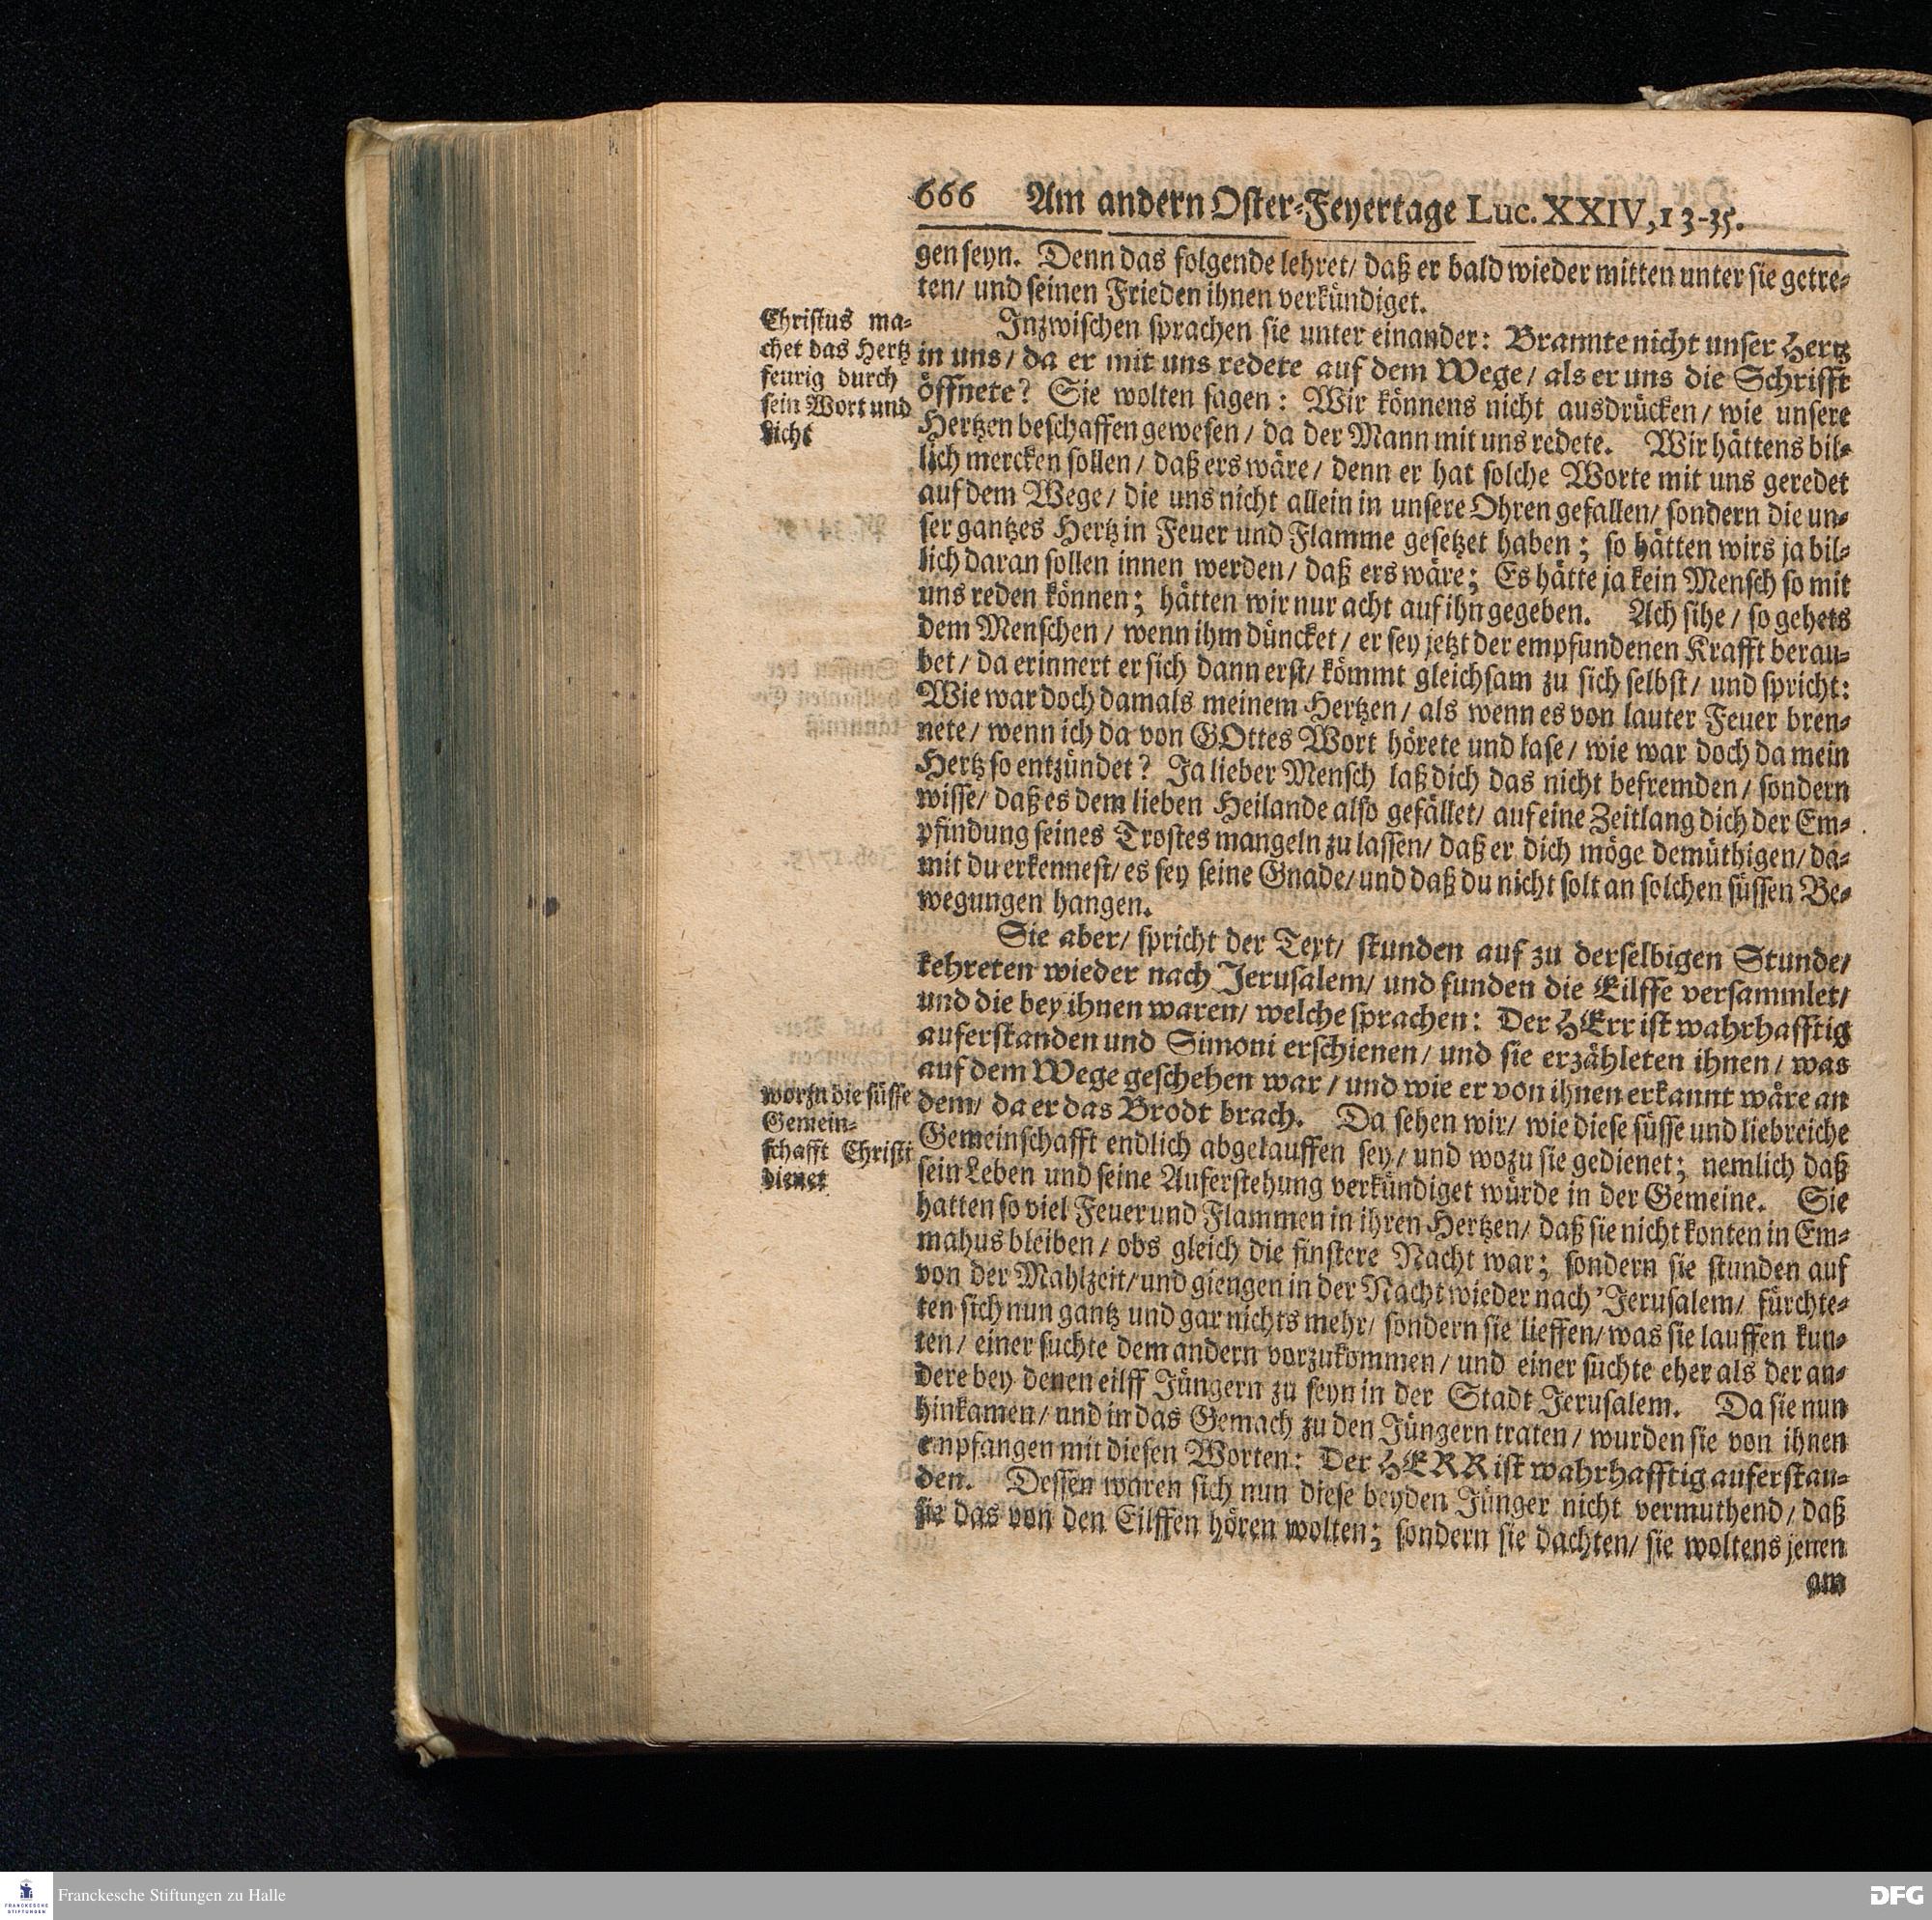 666 Am andern Oster-Feyertage Luc. XXIV, 13-35.
gen seyn. Denn das folgende lehret/ daß er bald wieder mitten unter sie getre-
ten/ und seinen Frieden ihnen verkündiget.
Christus ma-
chet das Hertz
feurig durch
sein Wort und
Licht
Inzwischen sprachen sie unter einander: Brannte nicht unser Hertz
in uns/ da er mit uns redete auf dem Wege/ als er uns die Schrifft
öffnete? Sie wolten sagen: Wir könnens nicht ausdrücken/ wie unsere
Hertzen beschaffen gewesen/ da der Mann mit uns redete. Wir hättens bil-
lich mercken sollen/ daß ers wäre/ denn er hat solche Worte mit uns geredet
auf dem Wege/ die uns nicht allein in unsere Ohren gefallen/ sondern die un-
ser gantzes Hertz in Feuer und Flamme gesetzet haben; so hätten wirs ja bil-
lich daran sollen innen werden/ daß ers wäre; Es hätte ja kein Mensch so mit
uns reden können; hätten wir nur acht auf ihn gegeben. Ach sihe/ so gehets
dem Menschen/ wenn ihm düncket/ er sey jetzt der empfundenen Krafft berau-
bet/ da erinnert er sich dann erst/ kömmt gleichsam zu sich selbst/ und spricht:
Wie war doch damals meinem Hertzen/ als wenn es von lauter Feuer bren-
nete/ wenn ich da von GOttes Wort hörete und lase/ wie war doch da mein
Hertz so entzündet? Ja lieber Mensch laß dich das nicht befremden/ sondern
wisse/ daß es dem lieben Heilande also gefället/ auf eine Zeitlang dich der Em-
pfindung seines Trostes mangeln zu lassen/ daß er dich möge demüthigen/ da-
mit du erkennest/ es sey seine Gnade/ und daß du nicht solt an solchen süssen Be-
wegungen hangen.
Sie aber/ spricht der Text/ stunden auf zu derselbigen Stunde/
kehreten wieder nach Jerusalem/ und funden die Eilffe versammlet/
und die bey ihnen waren/ welche sprachen: Der HErr ist wahrhafftig
auferstanden und Simoni erschienen/ und sie erzähleten ihnen/ was
auf dem Wege geschehen war/ und wie er von ihnen erkannt wäre an
worzu die süsse
Gemein-
schafft Christi
dienet
dem/ da er das Brodt brach. Da sehen wir/ wie diese süsse und liebreiche
Gemeinschafft endlich abgelauffen sey/ und wozu sie gedienet; nemlich daß
sein Leben und seine Auferstehung verkündiget würde in der Gemeine. Sie
hatten so viel Feuer und Flammen in ihren Hertzen/ daß sie nicht konten in Em-
mahus bleiben/ obs gleich die finstere Nacht war; sondern sie stunden auf
von der Mahlzeit/ und giengen in der Nacht wieder nach Jerusalem/ fürchte-
ten sich nun gantz und gar nichts mehr/ sondern sie lieffen/ was sie lauffen kun-
ten/ einer suchte dem andern vorzukommen/ und einer suchte eher als der an-
dere bey denen eilff Jüngern zu seyn in der Stadt Jerusalem. Da sie nun
hinkamen/ und in das Gemach zu den Jüngern traten/ wurden sie von ihnen
empfangen mit diesen Worten: Der HERR ist wahrhafftig auferstan-
den. Dessen waren sich nun diese beyden Jünger nicht vermuthend/ daß
sie das von den Eilffen hören wolten; sondern sie dachten/ sie woltens jenen
am
Franckesche Stiftungen zu Halle
FRANCKESCHE
STIFTUNGEN
DFG